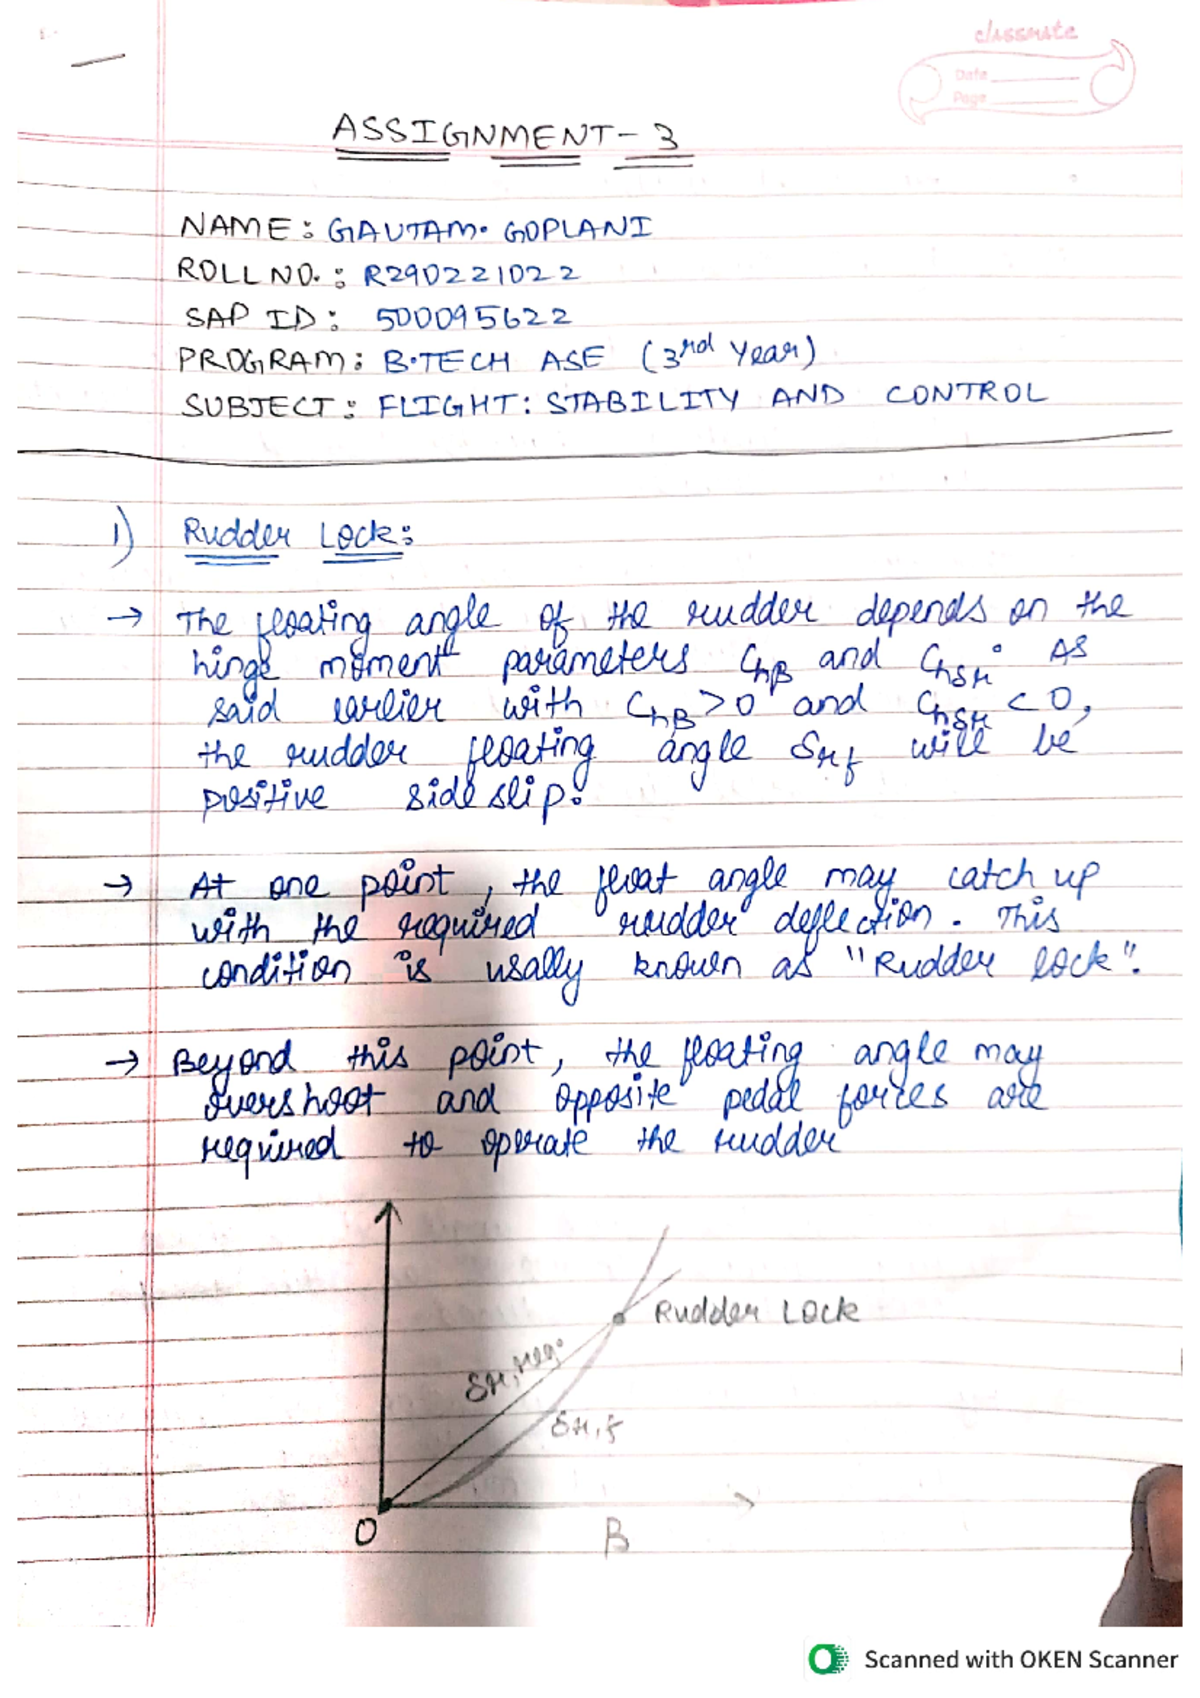 classmate
Date
Page
ASSIGNMENT-3
NAME: GAUTAM. GOPLANI
ROLL NO. : R290221022
SAP ID: 500095622
PROGRAM: B.TECH ASE (3rd Year)
SUBJECT: FLIGHT: STABILITY AND CONTROL
1) Rudder Lock:
→ The floating angle of the rudder depends on the
hinge moment parameters Chβ and Chδr. As
said earlier with Chβ>0 and Chδr<0,
the rudder floating angle δrf will be
positive sideslip.
→ At one point, the float angle may catch up
with the required rudder deflection. This
condition is usally known as "Rudder lock".
→ Beyond this point, the floating angle may
overshoot and opposite pedal forces are
required to operate the rudder
Rudder Lock
δr,req.
δr,f
O
β
Scanned with OKEN Scanner